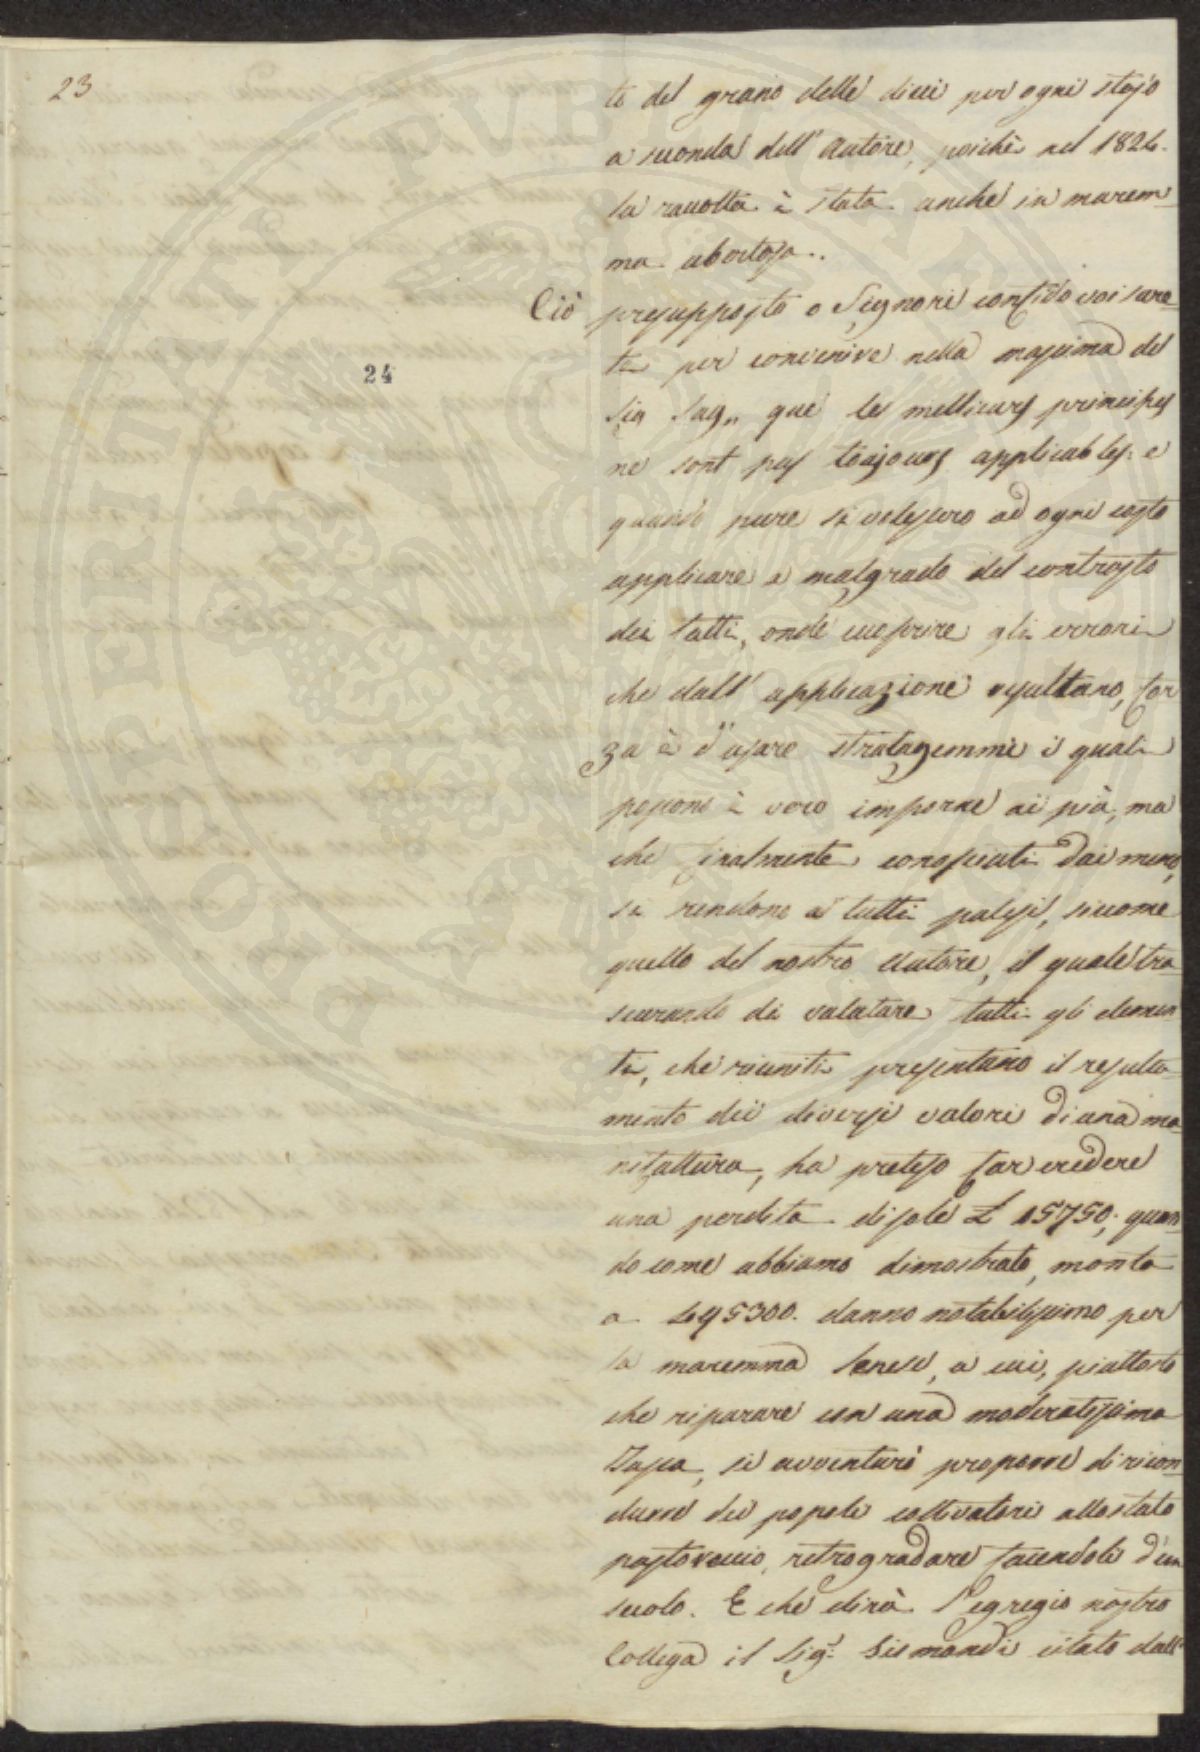 23
24
to del grano delle dieci per ogni stajo
a seconda dell' Autore, poichè nel 1824.
la raccolta è stata anche in marem=
ma abortosa..
Ciò presupposto o Signori confido voi sare=
te per convenire nella massima del
Sig Sag,, que les mellieurs principes
ne sont pas toujours applicables: e
quando pure si volessero ad ogni costo
applicare a malgrado del contrasto
dei fatti, onde cuoprire gli errori
che dall' applicazione resultano, for
za è d'usare stratagemmi i quali
possono è vero imporne ai più, ma
che finalmente conosciuti dai meno,
si rendono a tutti palesi, siccome
quello del nostro Autore, il quale tra=
scurando di valutare tutti gli elemen
ti, che riuniti presentano il resulta=
mento dei diversi valori di una ma=
nifattura, ha preteso far credere
una perdita di sole £ 15750; quan=
do come abbiamo dimostrato, monta
a 495300. danno notabilissimo per
la maremma Senese, a cui, piuttosto
che riparare con una moderatissima
Tassa, si avventurò proporre di ricon=
durre dei popoli coltivatori allo stato
pastoreccio, retrogradare facendoli d'un
secolo. E che dirà l'egregio nostro
Collega il Sig.r Sismondi citato dall'
PROSPERITATI PUBLICAE AUGENDAE